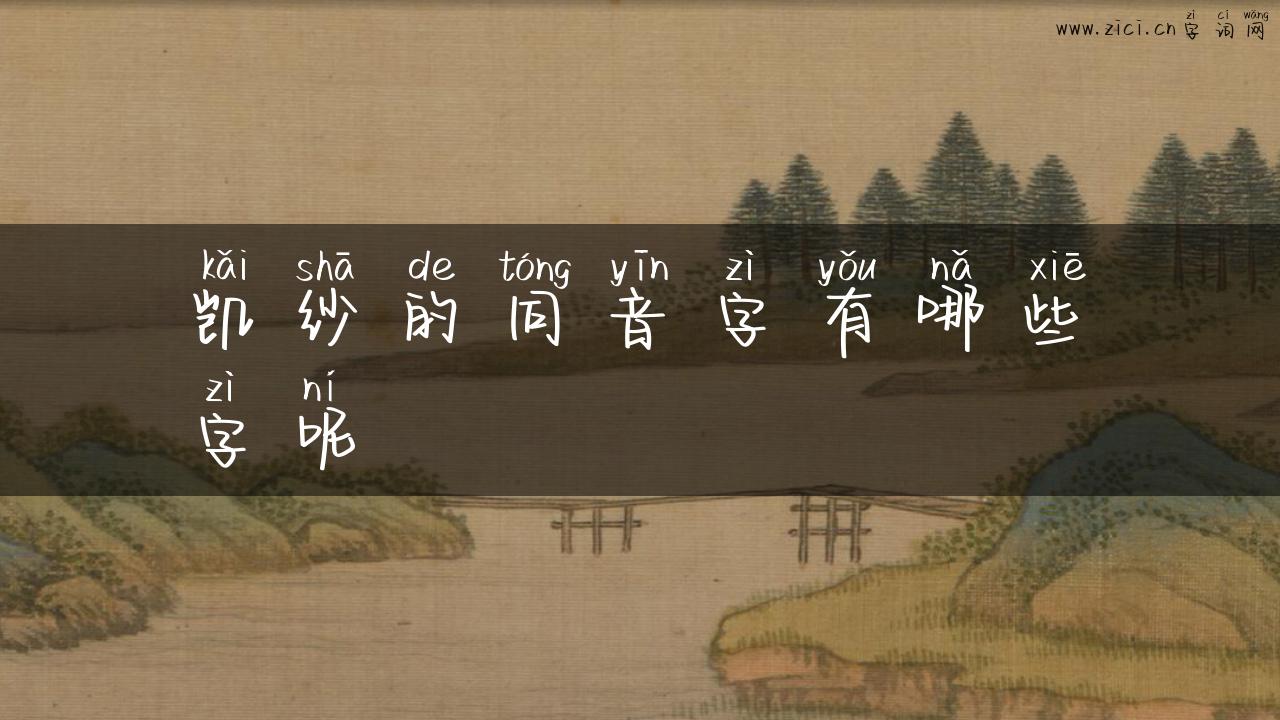 zì cí wǎng
www.zici.cn 字词网
kǎi shā de tóng yīn zì yǒu nǎ xiē
凯纱的同音字有哪些
zì ní
字呢